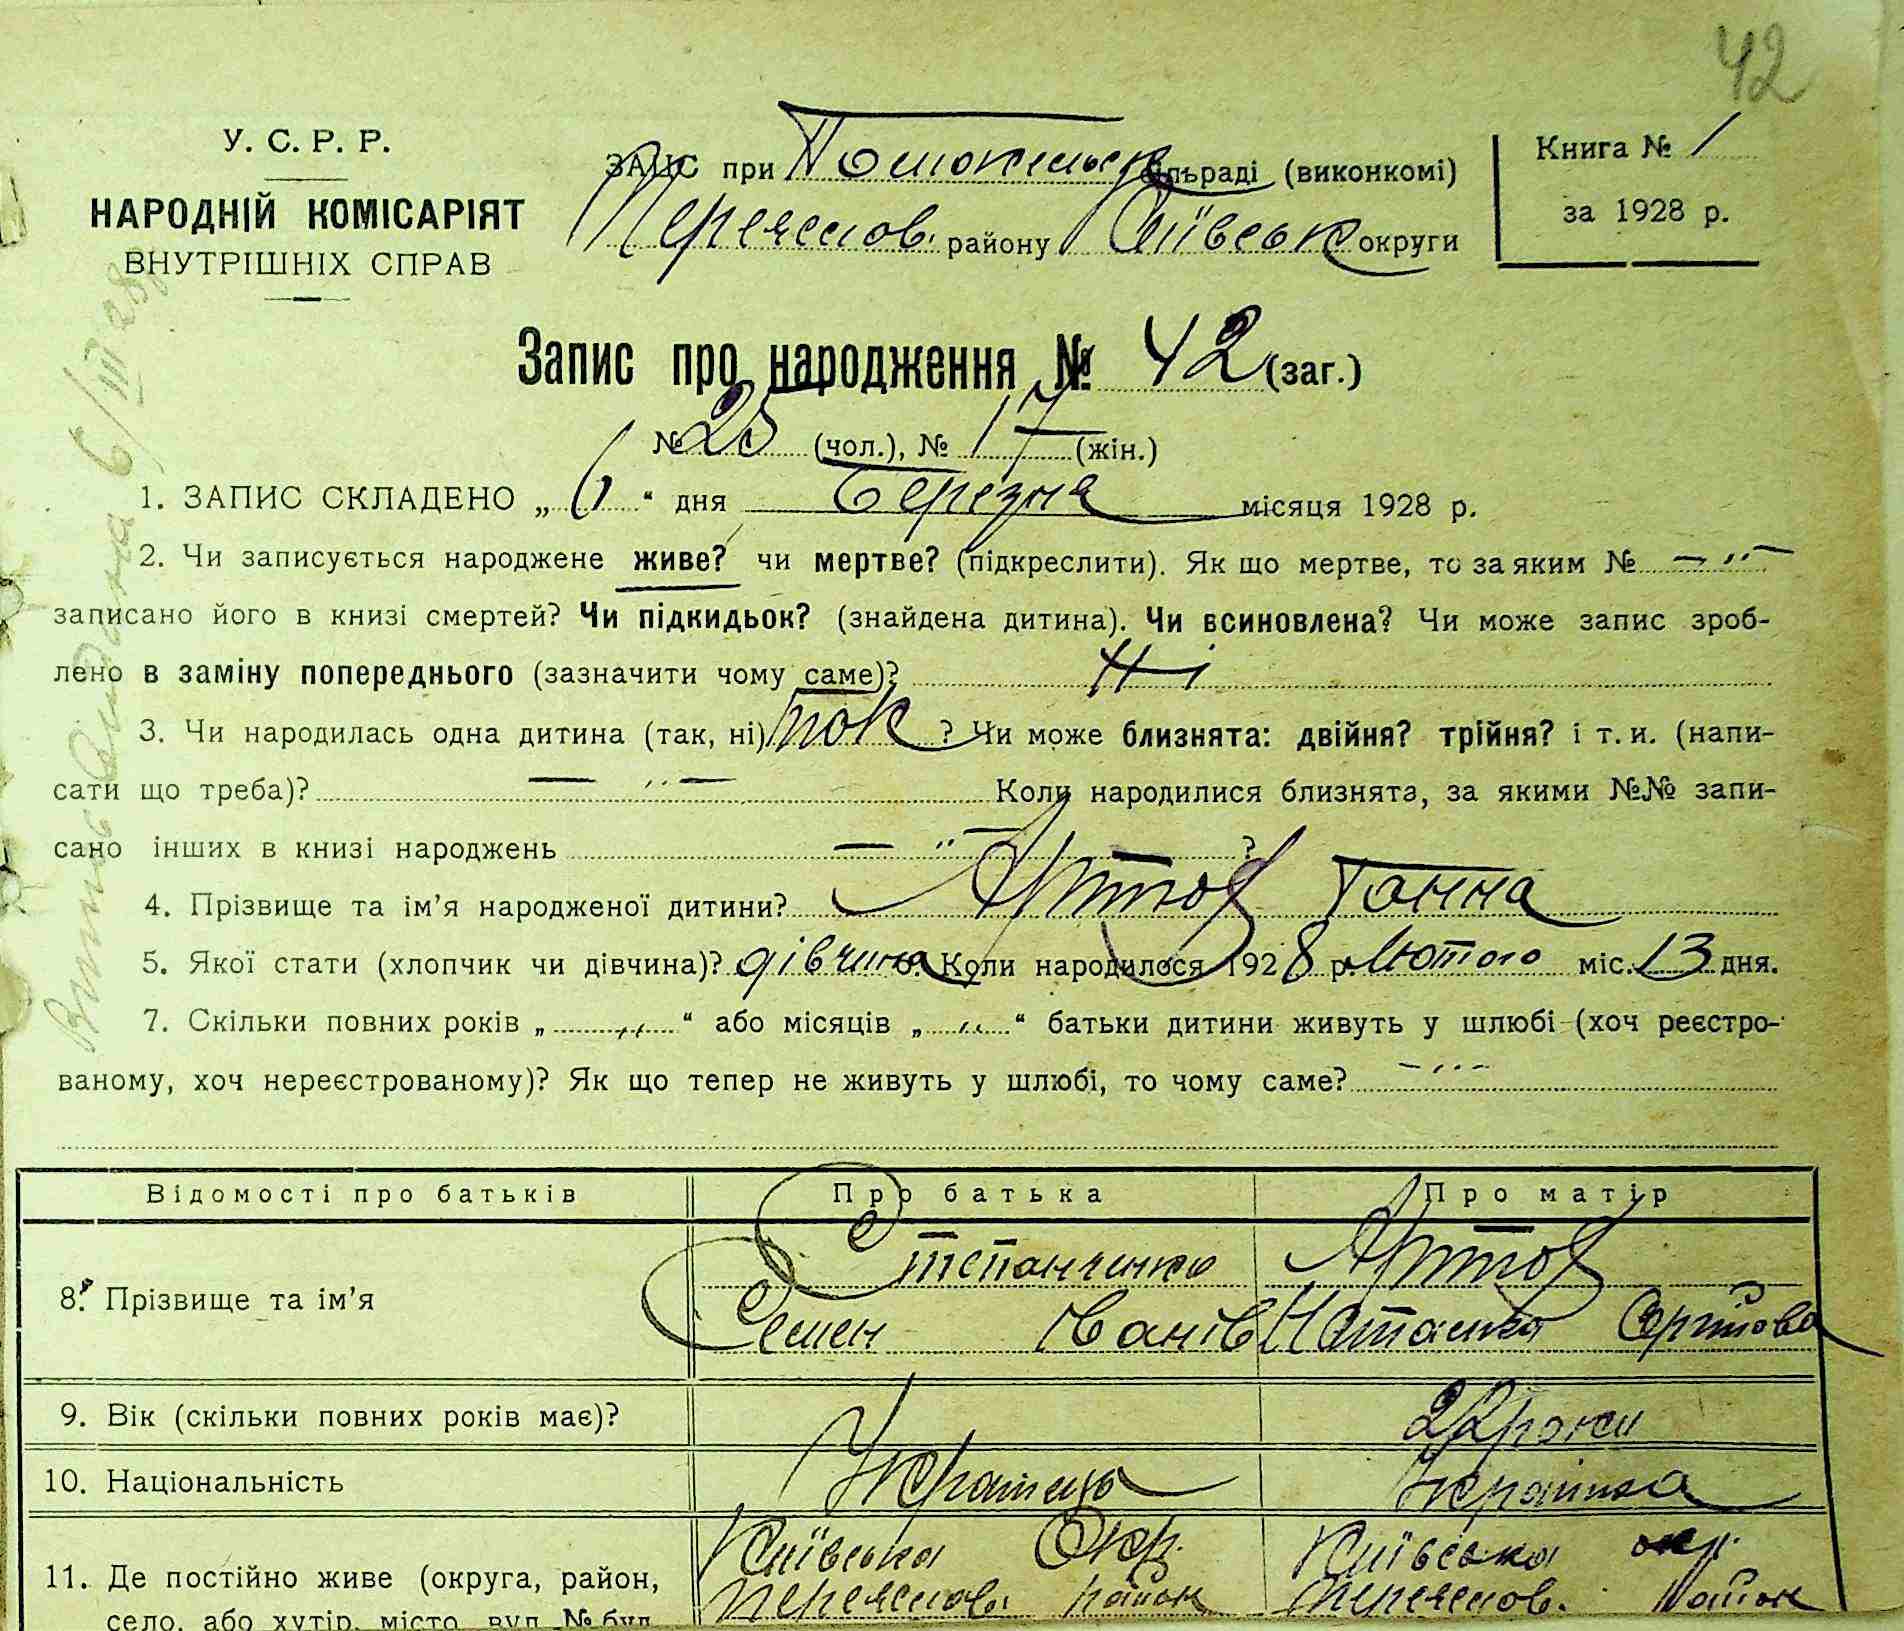 42
У. С. Р. Р.
НАРОДНІЙ КОМІСАРІЯТ
ВНУТРІШНІХ СПРАВ
ЗАПИС при Помокельск сільраді (виконкомі)
Переяслов. району Київськ округи
Книга № 1
за 1928 р.
Запис про народження № 42 (заг.)
№ 25 (чол.), № 17 (жін.)
1. ЗАПИС СКЛАДЕНО „ 6 “ дня Березня місяця 1928 р.
2. Чи записується народжене живе? чи мертве? (підкреслити). Як що мертве, то за яким № — „ —
записано його в книзі смертей? Чи підкидьок? (знайдена дитина). Чи всиновлена? Чи може запис зроб-
лено в заміну попереднього (зазначити чому саме)? Ні
3. Чи народилась одна дитина (так, ні) так ? Чи може близнята: двійня? трійня? і т. и. (напи-
сати що треба)? — „ — Коли народилися близнята, за якими №№ запи-
сано інших в книзі народжень — „ — ?
4. Прізвище та ім’я народженої дитини? Артюх Ганна
5. Якої стати (хлопчик чи дівчина)? дівчина 6. Коли народилося 1928 р. Лютого міс. 13 дня.
7. Скільки повних років „ „ “ або місяців „ „ “ батьки дитини живуть у шлюбі (хоч реєстро-
ваному, хоч нереєстрованому)? Як що тепер не живуть у шлюбі, то чому саме? — „ —
Відомості про батьків Про батька Про матір
8. Прізвище та ім’я Степанченко Артюх
Семен Іванів Наталка Сергійова
9. Вік (скільки повних років має)? 22 роки
10. Національність Українець Українка
11. Де постійно живе (округа, район, Київська Окр. Київська окр.
село, або хутір, місто, вул. № буд. Переяслов. район Переяслов. Район
Витяг видана 6/III 28 р